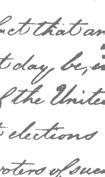 act that an
t day, be, in
of the United
t elections
voters of suc